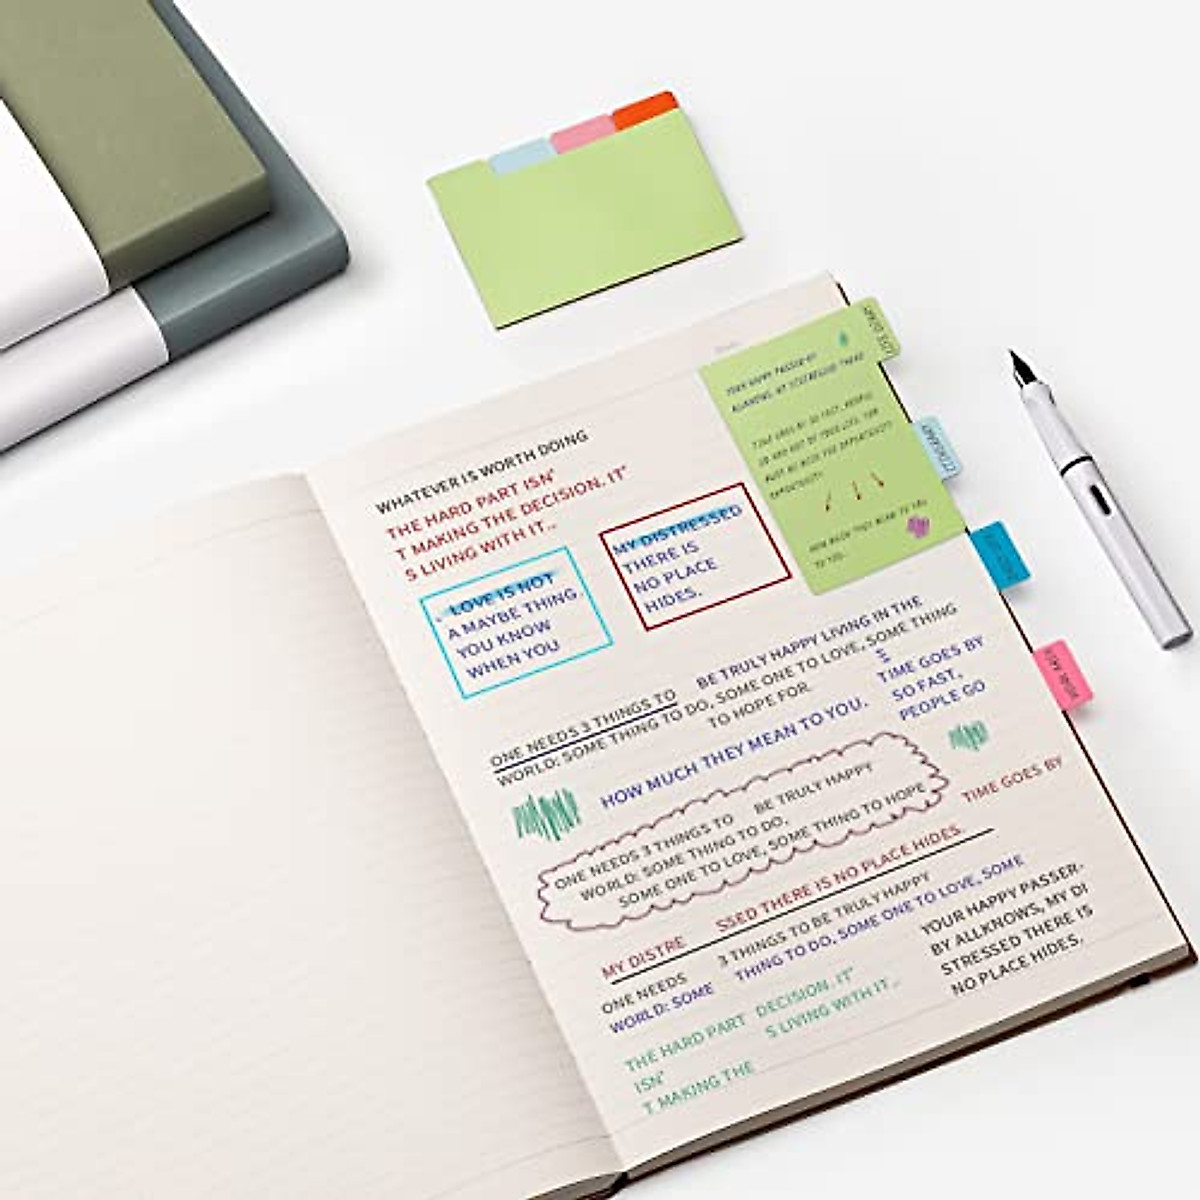 WHATEVER IS WORTH DOING
THE HARD PART ISN'
T MAKING THE DECISION. IT'
S LIVING WITH IT...
LOVE IS NOT
A MAYBE THING
YOU KNOW
WHEN YOU
MY DISTRESSED
THERE IS
NO PLACE
HIDES.
YOUR HAPPY PASSER-BY
TIME GOES BY SO FAST, PEOPLE
HOW MUCH THEY MEAN TO YOU
TO YOU.
ONE NEEDS 3 THINGS TO BE TRULY HAPPY LIVING IN THE
WORLD: SOME THING TO DO, SOME ONE TO LOVE, SOME THING
TO HOPE FOR.
S
TIME GOES BY
SO FAST,
PEOPLE GO
HOW MUCH THEY MEAN TO YOU.
ONE NEEDS 3 THINGS TO BE TRULY HAPPY
WORLD: SOME THING TO DO,
SOME ONE TO LOVE, SOME THING TO HOPE
TIME GOES BY
MY DISTRE SSED THERE IS NO PLACE HIDES.
ONE NEEDS 3 THINGS TO BE TRULY HAPPY
WORLD: SOME THING TO DO, SOME ONE TO LOVE, SOME
THE HARD PART DECISION. IT'
ISN' S LIVING WITH IT...
T MAKING THE
YOUR HAPPY PASSER-
BY ALLKNOWS, MY DI
STRESSED THERE IS
NO PLACE HIDES.